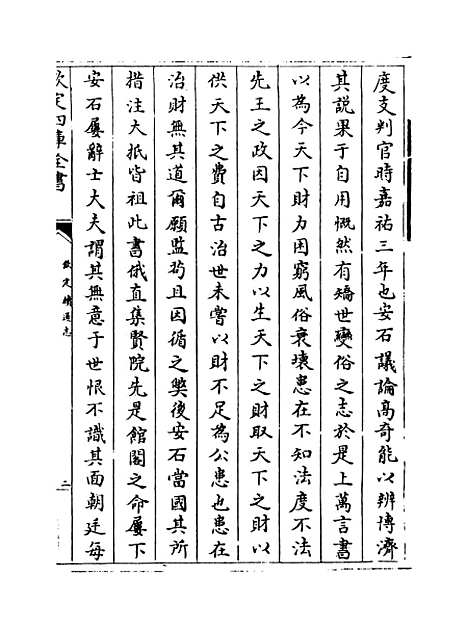 度支判官時嘉祐三年也安石議論高奇能以辨博濟
其說果于自用慨然有矯世變俗之志於是上萬言書
以為今天下財力困窮風俗衰壞患在不知法度不法
先王之政因天下之力以生天下之財取天下之財以
供天下之費自古治世未嘗以財不足為公患也患在
治財無其道爾願監茍且因循之獘後安石當國其所
措注大抵皆祖此書俄直集賢院先是館閣之命屢下
安石屢辭士大夫謂其無意于世恨不識其面朝廷每
欽定四庫全書
欽定續通志
二